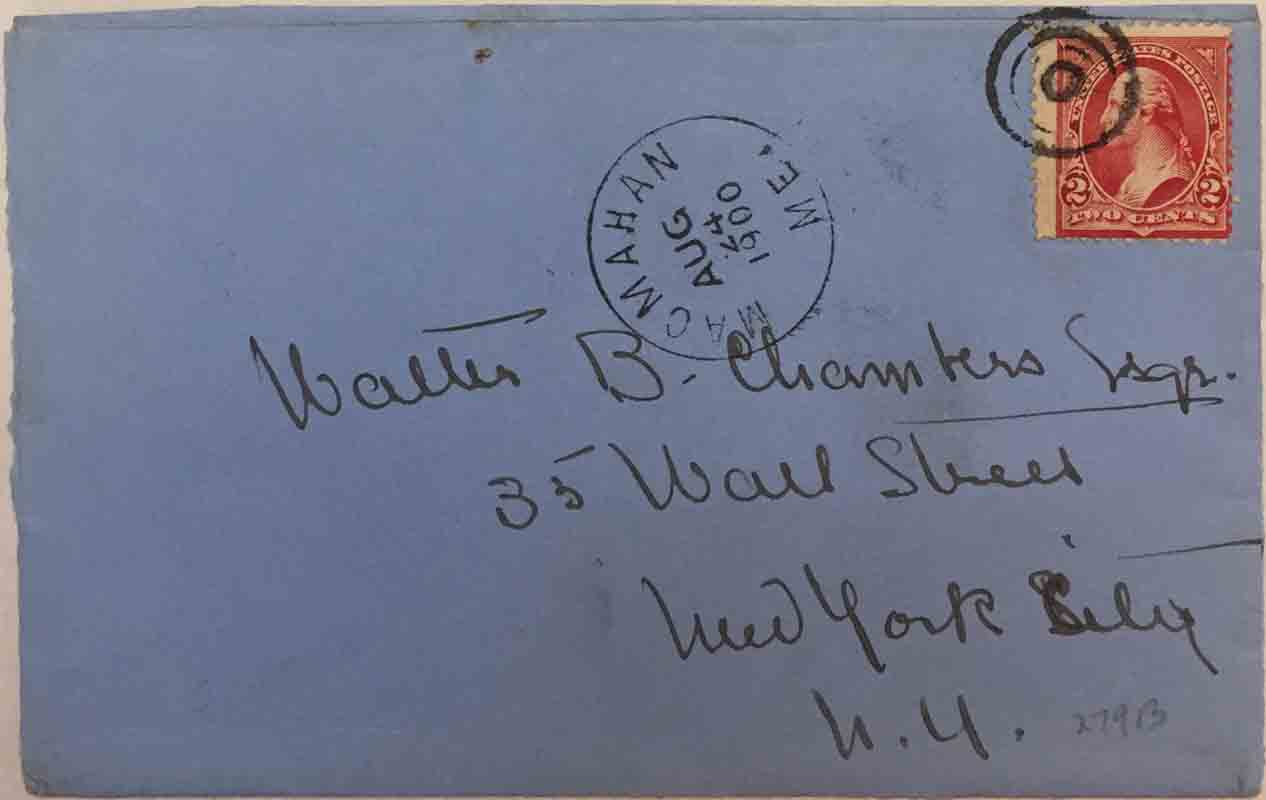 UNITED STATES POSTAGE
2 2
TWO CENTS
MACMAHAN ME.
AUG
24
1900
Walter B. Chambers Esqr.
35 Wall Street
New York City
N.Y.
279B